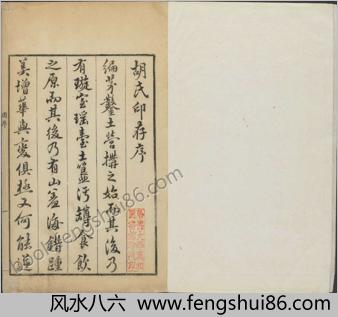 胡氏印存序
編茅鑿土營搆之始而其後乃
有璇室瑤臺土簋汙罇食飲
之原而其後乃有山羞海錯踵
美增華與變俱極又何能道
風水八六 www.fengshui86.com